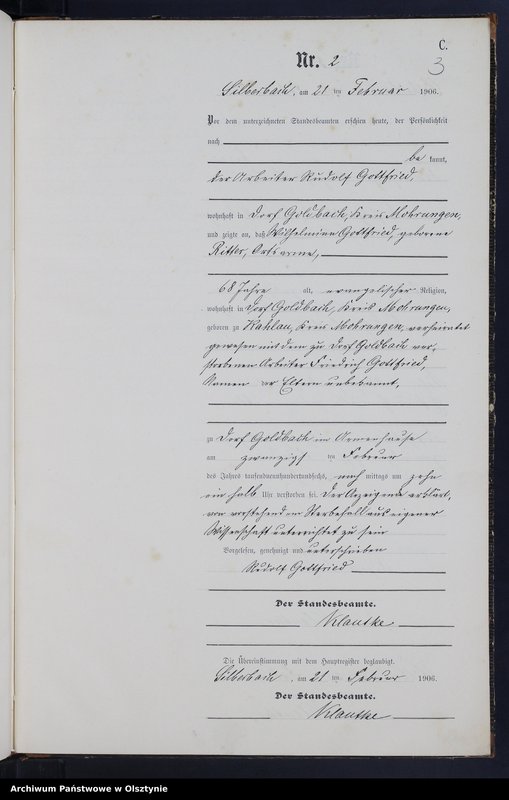 C.
Nr. 2
3
Silberbach, am 21 ten Februar 1906.
Vor dem unterzeichneten Standesbeamten erschien heute, der Persönlichkeit
nach
be kannt,
der Arbeiter Rudolf Gottfried,
wohnhaft in Dorf Goldbach, Kreis Mohrungen,
und zeigte an, daß Wilhelmine Gottfried, geborene
Ritter, Ortsarme,
68 Jahre alt, evangelischer Religion,
wohnhaft in Dorf Goldbach, Kreis Mohrungen,
geboren zu Kahlau, Kreis Mohrungen, verheiratet
gewesen mit dem zu Dorf Goldbach ver-
storbenen Arbeiter Friedrich Gottfried,
Namen der Eltern unbekannt,
zu Dorf Goldbach im Armenhause
am zwanzigst ten Februar
des Jahres tausendneunhundertundsechs, nach mittags um zehn
ein halb Uhr verstorben sei. Der Anzeigende erklärt,
von vorstehendem Sterbefall aus eigener
Wissenschaft unterrichtet zu sein
Vorgelesen, genehmigt und unterschrieben
Rudolf Gottfried
Der Standesbeamte.
Klautke
Die Übereinstimmung mit dem Hauptregister beglaubigt.
Silberbach, am 21 ten Februar 1906.
Der Standesbeamte.
Klautke
Archiwum Państwowe w Olsztynie